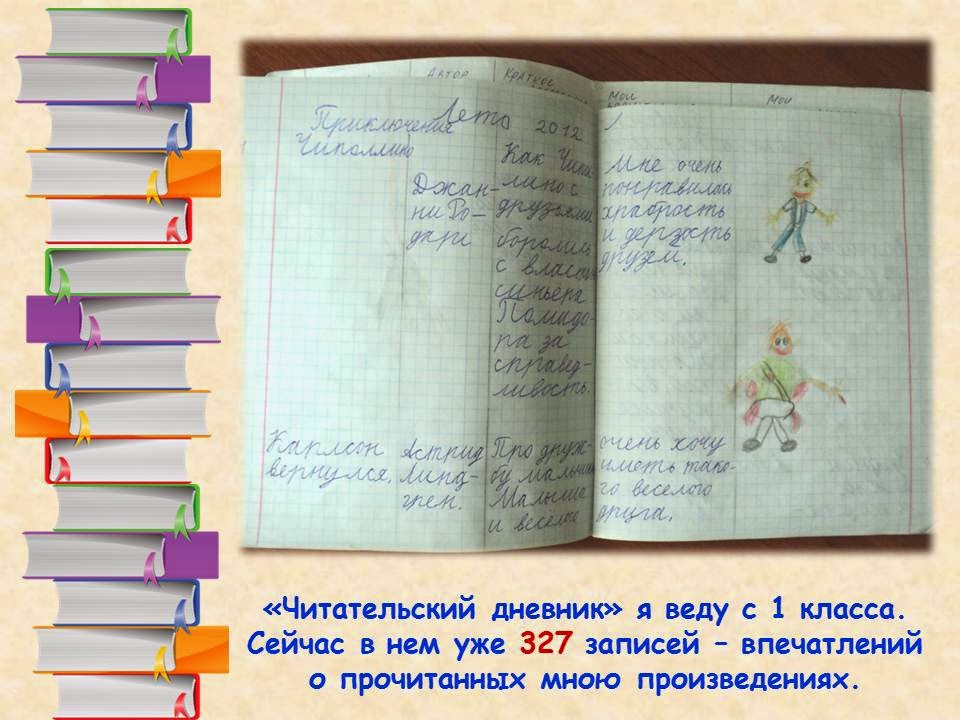 Автор Краткое
Мои Мои
Лето 2012
Приключение
Чиполлино
Джан-
ни Ро-
дари
Как Чипо
лино с
друзьями
боролись
с власть
синьера
Помидо-
ра за
справед-
ливость.
1
Мне очень
понравилась
храбрость
и дерзость
друзей.
Карлсон
вернулся.
Астрид
Линд-
грен.
Про друж-
бу мальчи
Малыша
и весёлого
очень хочу
иметь тако-
го веселого
друга.
«Читательский дневник» я веду с 1 класса.
Сейчас в нем уже 327 записей – впечатлений
о прочитанных мною произведениях.